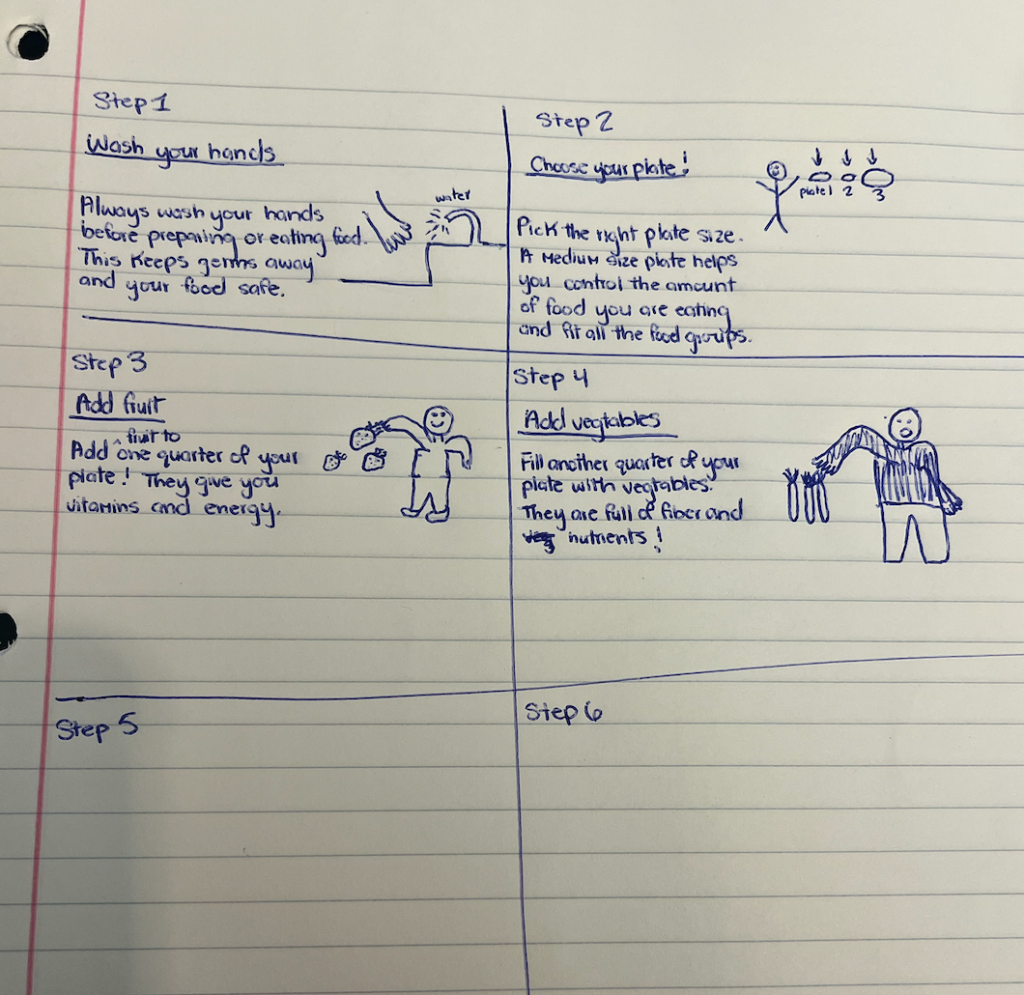 Step 1
Wash your hands
Always wash your hands
before preparing or eating food.
This keeps germs away
and your food safe.
water
Step 2
Choose your plate!
plate 1 2 3
Pick the right plate size.
A Medium size plate helps
you control the amount
of food you are eating
and fit all the food groups.
Step 3
Add fruit
Add ^ fruit to one quarter of your
plate! They give you
vitamins and energy.
Step 4
Add vegtables
Fill another quarter of your
plate with vegtables.
They are full of fiber and
nutrients!
Step 5
Step 6